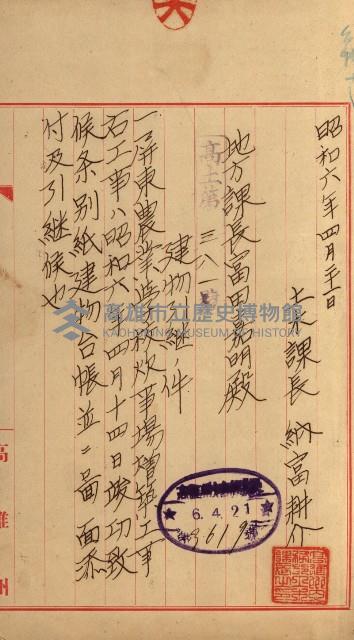 昭和六年四月廿一日
土木課長 納富耕介
地方課長富田嘉明殿
高土第三八一號
建物引継ノ件
一屏東農業造林牧炊事場增築工事
右工事ハ昭和六年四月十四日竣功致
候条別紙建物台帳並ニ図面添
付及引継候也
6.4.21
高雄州
高雄市立歷史博物館
KAOHSIUNG MUSEUM OF HISTORY